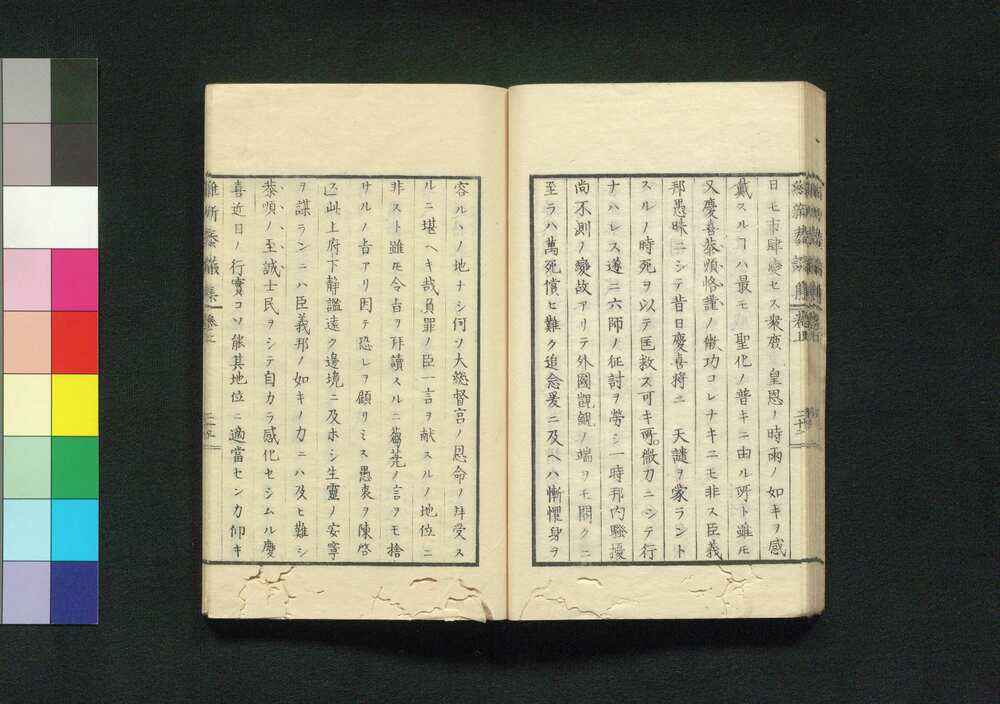 日モ市肆變セス衆庶 皇恩ノ時雨ノ如キヲ感
戴スルヿハ最モ 聖化ノ普キニ由ル所ト雖モ
又慶喜恭順恪謹ノ微功コレナキニモ非ス臣義
邦愚昧ニシテ昔日慶喜將ニ 天譴ヲ蒙ラント
スルノ時死ヲ以テ匡救ス可キ所微力ニシテ行
ナハレス遂ニ六師ノ征討ヲ勞シ一時邦内騷擾
尚不測ノ變故アリテ外國覬覦ノ端ヲモ開クニ
至ラハ萬死償ヒ難ク追念爰ニ及ヘハ慚懼身ヲ
容ルヽノ地ナシ何ソ大総督宮ノ恩命ノ拜受ス
ルニ堪ヘキ哉負罪ノ臣一言ヲ献スルノ地位ニ
非スト雖モ令旨ヲ拜讀スルニ蒭蕘ノ言ヲモ捨
サルノ旨アリ因テ恐レヲ顧リミス愚衷ヲ陳啓
ス此上府下静謐遠ク邊境ニ及ホシ生靈ノ安寧
ヲ謀ランニハ臣義邦ノ如キノ力ニハ及ヒ難シ
恭順ノ至誠士民ヲシテ自カラ感化セシムル慶
喜近日ノ行實コソ能其地位ニ適當センカ仰キ